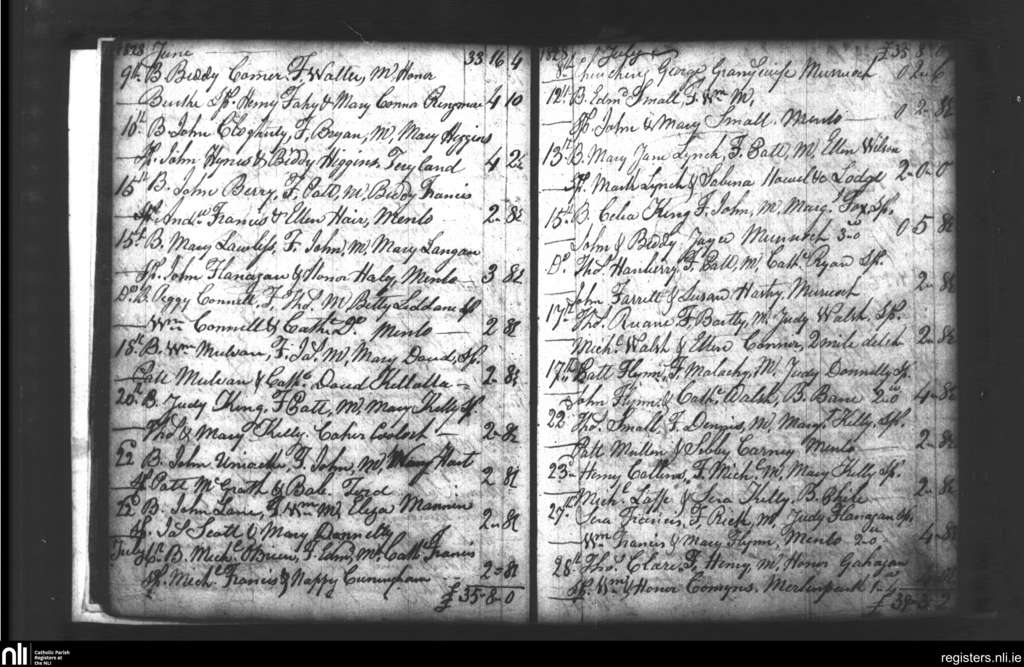 1828 June 33 16 4
9th B. Biddy Comer, F. Walter, M. Honor
Burke Sp. Henry Fahy & Mary Conna Ringmar 4 10
10th B. John Cloherty, F. Bryan, M. Mary Higgins
Sp. John Hynes & Biddy Higgins, Terryland 4 2½
15th B. John Berry, F. Patt, M. Biddy Francis
Sp. Andw Francis & Ellen Hair, Menlo 2-8½
15th B. Mary Lawless, F. John, M. Mary Langan
Sp. John Flanagan & Honor Haly, Menlo 3 8½
Do B. Peggy Connell, F. Thos. M. Betty Liddane Sp
Wm Connell & Cathe Do Menlo 2 8½
18th B. Wm Mulvan, F. Jas. M. Mary David, Sp.
Patt Mulvan & Cathe David Killalla 2-8½
20th B. Judy King, F. Patt, M. Mary Kelly Sp
Thos & Mary Kelly. Caher Coolosh 2-8½
22 B. John F. John, M. Mary Hart
Sp. Patt McGrath & Bab. Ford 2 8½
22 B. John Lane, F. Wm M. Eliza Mannin
Sp. Jas Scott & Mary Donnelly 2-8½
July B. Michl OBrien, F. Edmd M. Cathe Francis
Sp. Michl Francis & Nappy Cuningham 2=8½
£35-8-0
1828 July £35-8-0
8th George Murrough 0 2-6
12th B. Edmd Small, F. Wm M.
Sp. John & Mary Small. Menlo 0-2-8½
13th B. Mary Jane Lynch, F. Patt, M. Ellen Wilson
Sp. Mark Lynch & Sabina Lodge 2-0-0
15th B. Celia King F. John, M. Margt Fox, Sp.
John & Biddy Joyce Murrough 0 5 8½
Do Thos. Hanberry, F. Patt, M. Cathe Ryan Sp.
John Farrell & Susan Murrough 2-8½
17th Thos. Ruane F. Bartly, M. Judy Walsh Sp.
Michl Walsh & Ellen Connor, 2 mile ditch 2-8½
17th Patt Flynn, F. Malachy, M. Judy Donnelly Sp
John Flynn & Cathe Walsh, B. Bane 4-8½
22 Thos. Small, F. Dennis, M. Margt Kelly, Sp.
Patt Mullen & Sibby Carney Menlo 2-8½
23d Henry Collins, F. Mich. M. Mary Kelly Sp.
Michl & Kelly. B. 2-8½
27th Francis, F. Rick, M. Judy Flanagan Sp.
Wm Francis & Mary Flynn, Menlo 4-8½
28th Thos. Clare F. Henry, M. Honor Gahagan
Sp. Wm & Honor Comyns. Merlinpark